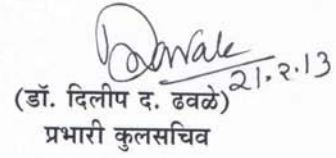 Dawale
21.२.13
(डॉ. दिलीप द. ढवळे)
प्रभारी कुलसचिव